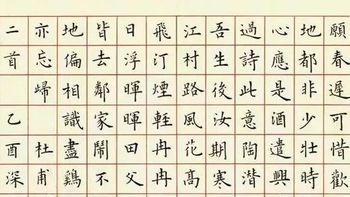 願春遲可惜歡
地都非少壯時
心應是酒遣興
過詩此意陶潛
吾生後汝期寒
江村路風花高
飛汀煙輕冉冉
日浮暉暉田父
皆去鄰家鬧不
地偏相識盡鷄
亦忘歸 杜甫
二首 乙酉深